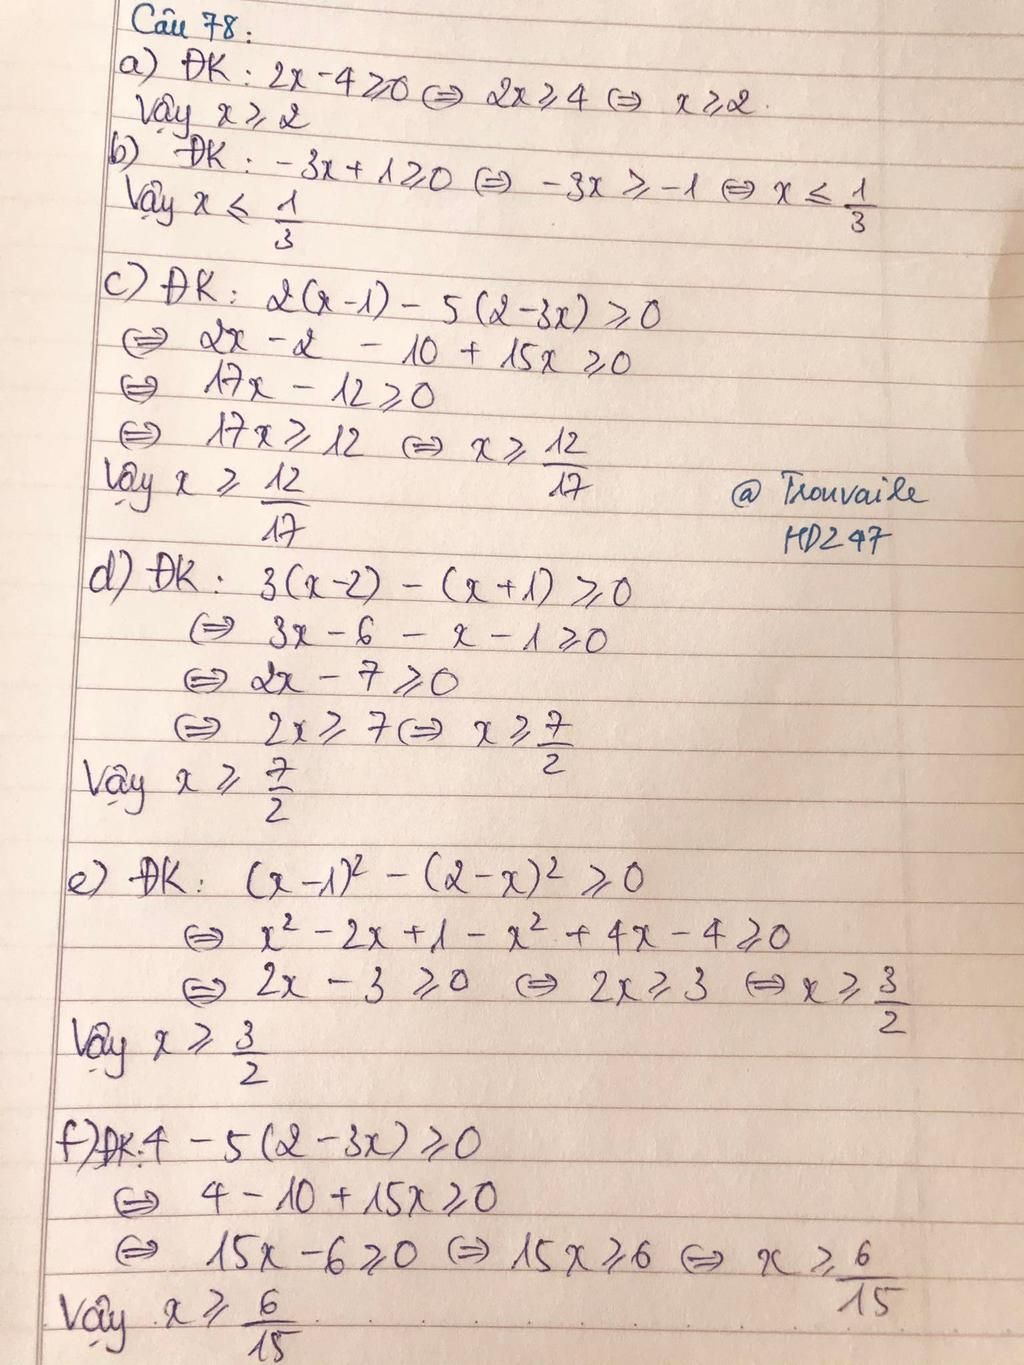 Câu 78:
a) ĐK: 2x - 4 ⩾ 0 ⇔ 2x ⩾ 4 ⇔ x ⩾ 2.
Vậy x ⩾ 2
b) ĐK: -3x + 1 ⩾ 0 ⇔ -3x ⩾ -1 ⇔ x ⩽ 1/3
Vậy x ⩽ 1/3
c) ĐK: 2(x-1) - 5(2-3x) ⩾ 0
⇔ 2x - 2 - 10 + 15x ⩾ 0
⇔ 17x - 12 ⩾ 0
⇔ 17x ⩾ 12 ⇔ x ⩾ 12/17
Vậy x ⩾ 12/17
@ Trouvaille
HD247
d) ĐK: 3(x-2) - (x+1) ⩾ 0
⇔ 3x - 6 - x - 1 ⩾ 0
⇔ 2x - 7 ⩾ 0
⇔ 2x ⩾ 7 ⇔ x ⩾ 7/2
Vậy x ⩾ 7/2
e) ĐK: (x-1)² - (2-x)² ⩾ 0
⇔ x² - 2x + 1 - x² + 4x - 4 ⩾ 0
⇔ 2x - 3 ⩾ 0 ⇔ 2x ⩾ 3 ⇔ x ⩾ 3/2
Vậy x ⩾ 3/2
f) ĐK: 4 - 5(2-3x) ⩾ 0
⇔ 4 - 10 + 15x ⩾ 0
⇔ 15x - 6 ⩾ 0 ⇔ 15x ⩾ 6 ⇔ x ⩾ 6/15
Vậy x ⩾ 6/15